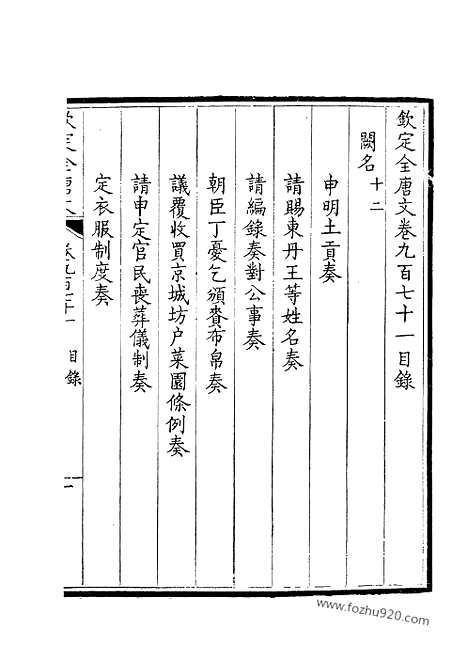 欽定全唐文卷九百七十一目錄
闕名十二
申明土貢奏
請賜東丹王等姓名奏
請編錄奏對公事奏
朝臣丁憂乞頒賚布帛奏
議覆收買京城坊户菜園條例奏
請申定官民喪葬儀制奏
定衣服制度奏
欽定全唐文 卷九百七十一 目錄 一
www.fozhu920.com